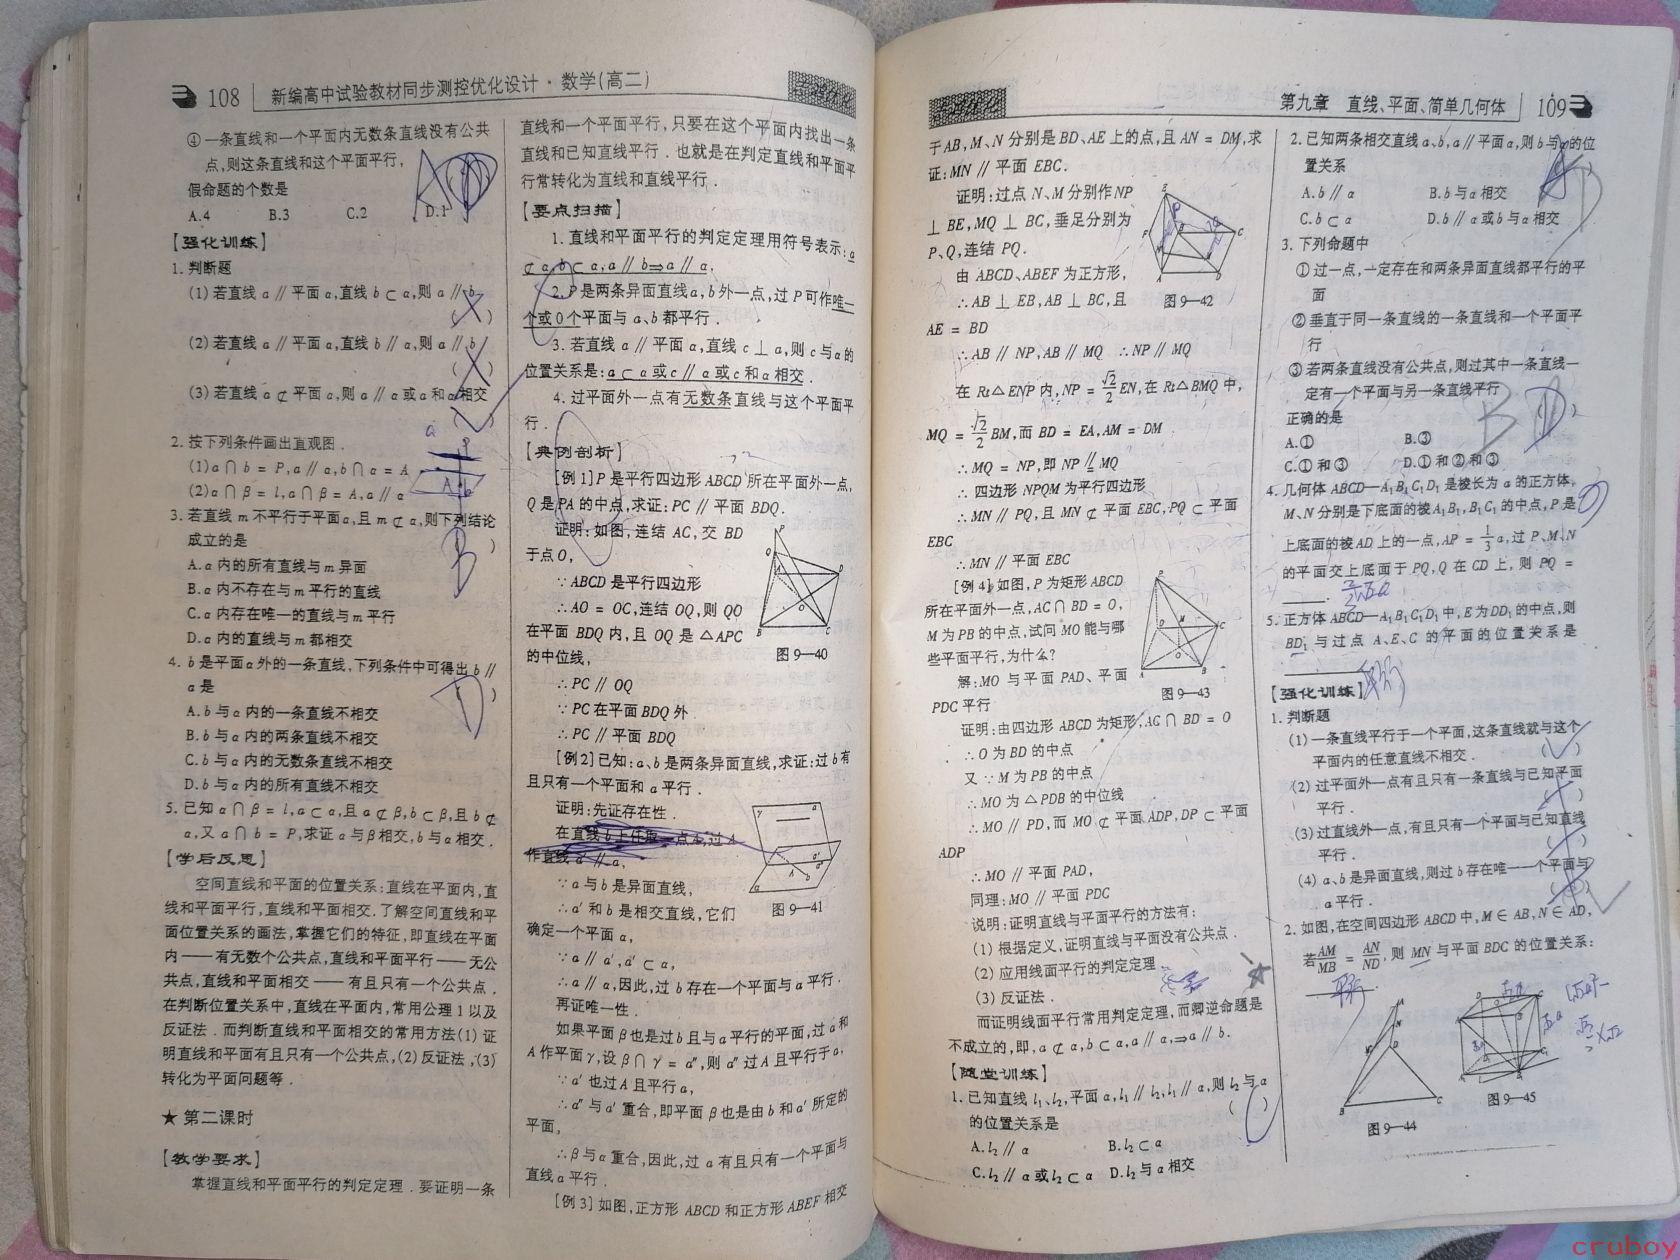 108 新编高中试验教材同步测控优化设计·数学(高二)
④ 一条直线和一个平面内无数条直线没有公共
点,则这条直线和这个平面平行,
假命题的个数是
A.4 B.3 C.2 D.1
【强化训练】
1. 判断题
(1) 若直线 a∥平面α,直线 b⊂α,则 a∥b
( )
(2) 若直线 a∥平面α,直线 b∥α,则 a∥b
( )
(3) 若直线 a⊄平面α,则 a∥α或a和α相交
( )
2. 按下列条件画出直观图.
(1) a∩b=P,a∥α,b∩α=A
(2) α∩β=l,a∩β=A,a∥α
3. 若直线 m 不平行于平面α,且 m⊄α,则下列结论
成立的是 ( )
A. α内的所有直线与 m 异面
B. α内不存在与 m 平行的直线
C. α内存在唯一的直线与 m 平行
D. α内的直线与 m 都相交
4. b 是平面α外的一条直线,下列条件中可得出 b∥
α是 ( )
A. b与α内的一条直线不相交
B. b与α内的两条直线不相交
C. b与α内的无数条直线不相交
D. b与α内的所有直线不相交
5. 已知α∩β=l,a⊂α,且a⊄β,b⊂β,且b⊄
α,又a∩b=P,求证a与β相交,b与α相交.
【学后反思】
空间直线和平面的位置关系:直线在平面内,直
线和平面平行,直线和平面相交.了解空间直线和平
面位置关系的画法,掌握它们的特征,即直线在平面
内——有无数个公共点,直线和平面平行——无公
共点,直线和平面相交——有且只有一个公共点.
在判断位置关系中,直线在平面内,常用公理1以及
反证法.而判断直线和平面相交的常用方法(1)证
明直线和平面有且只有一个公共点,(2)反证法,(3)
转化为平面问题等.
★ 第二课时
【教学要求】
掌握直线和平面平行的判定定理.要证明一条
直线和一个平面平行,只要在这个平面内找出一条
直线和已知直线平行.也就是在判定直线和平面平
行常转化为直线和直线平行.
【要点扫描】
1. 直线和平面平行的判定定理用符号表示:a
⊄α,b⊂α,a∥b⇒a∥α.
2. P是两条异面直线a,b外一点,过P可作唯一
个或0个平面与a、b都平行.
3. 若直线 a∥平面α,直线 c⊥a,则c与α的
位置关系是:c⊂α或c∥α或c和α相交.
4. 过平面外一点有无数条直线与这个平面平
行.
【典例剖析】
[例1] P是平行四边形 ABCD 所在平面外一点,
Q是PA的中点,求证:PC∥平面 BDQ.
证明:如图,连结 AC,交 BD
于点O,
∵ABCD是平行四边形
∴AO=OC,连结OQ,则QO
在平面BDQ内,且OQ是△APC
的中位线,
图9—40
∴PC∥OQ
∵PC在平面BDQ外
∴PC∥平面BDQ
[例2] 已知:a、b是两条异面直线,求证:过b有
且只有一个平面和a平行.
证明:先证存在性.
在直线b上任取一点A,过A
作直线a′∥a,
∵a与b是异面直线,
∴a′和b是相交直线,它们
图9—41
确定一个平面α,
∵a∥a′,a′⊂α,
∴a∥α,因此,过b存在一个平面与a平行.
再证唯一性.
如果平面β也是过b且与a平行的平面,过a和
A作平面γ,设β∩γ=a″,则a″过A且平行于a,
∵a′也过A且平行a,
∴a″与a′重合,即平面β也是由b和a′所定的
平面,
∴β与α重合,因此,过a有且只有一个平面与
直线a平行.
[例3] 如图,正方形 ABCD 和正方形 ABEF 相交
第九章 直线、平面、简单几何体 109
于AB,M、N分别是BD、AE上的点,且AN=DM,求
证:MN∥平面EBC.
证明:过点N、M分别作NP
⊥BE,MQ⊥BC,垂足分别为
P、Q,连结PQ.
由ABCD、ABEF为正方形,
∴AB⊥EB,AB⊥BC,且
图9—42
AE=BD
∴AB∥NP,AB∥MQ ∴NP∥MQ
在Rt△ENP内,NP=√2/2 EN,在Rt△BMQ中,
MQ=√2/2 BM,而BD=EA,AM=DM
∴MQ=NP,即NP∥MQ
∴四边形NPQM为平行四边形
∴MN∥PQ,且MN⊄平面EBC,PQ⊂平面
EBC
∴MN∥平面EBC
[例4] 如图,P为矩形ABCD
所在平面外一点,AC∩BD=O,
M为PB的中点,试问MO能与哪
些平面平行,为什么?
解:MO与平面PAD、平面
PDC平行
图9—43
证明:由四边形ABCD为矩形,AC∩BD=O
∴O为BD的中点
又∵M为PB的中点
∴MO为△PDB的中位线
∴MO∥PD,而MO⊄平面ADP,DP⊂平面
ADP
∴MO∥平面PAD,
同理:MO∥平面PDC
说明:证明直线与平面平行的方法有:
(1) 根据定义,证明直线与平面没有公共点.
(2) 应用线面平行的判定定理
(3) 反证法.
而证明线面平行常用判定定理,而卿逆命题是
不成立的,即,a⊄α,b⊂α,a∥α,⇒a∥b.
【随堂训练】
1. 已知直线l₁、l₂,平面α,l₁∥l₂,l₁∥α,则l₂与α
的位置关系是 ( )
A. l₂∥α B. l₂⊂α
C. l₂∥α或l₂⊂α D. l₂与α相交
2. 已知两条相交直线a、b,a∥平面α,则b与α的位
置关系
A. b∥α B. b与α相交
C. b⊂α D. b∥α或b与α相交
3. 下列命题中
① 过一点,一定存在和两条异面直线都平行的平
面
② 垂直于同一条直线的一条直线和一个平面平
行
③ 若两条直线没有公共点,则过其中一条直线一
定有一个平面与另一条直线平行
正确的是 ( )
A.① B.③
C.①和③ D.①和②和③
4. 几何体ABCD—A₁B₁C₁D₁是棱长为a的正方体,
M、N分别是下底面的棱A₁B₁,B₁C₁的中点,P是
上底面的棱AD上的一点,AP=1/3 a,过P、M、N
的平面交上底面于PQ,Q在CD上,则PQ=
.
5. 正方体ABCD—A₁B₁C₁D₁中,E为DD₁的中点,则
BD₁与过点A、E、C的平面的位置关系是
平行
【强化训练】
1. 判断题
(1) 一条直线平行于一个平面,这条直线就与这个
平面内的任意直线不相交. ( )
(2) 过平面外一点有且只有一条直线与已知平面
平行. ( )
(3) 过直线外一点,有且只有一个平面与已知直线
平行. ( )
(4) a、b是异面直线,则过b存在唯一一个平面与
a平行. ( )
2. 如图,在空间四边形ABCD中,M∈AB,N∈AD,
若AM/MB=AN/ND,则MN与平面BDC的位置关系:
平行
图9—44
图9—45
cruboy